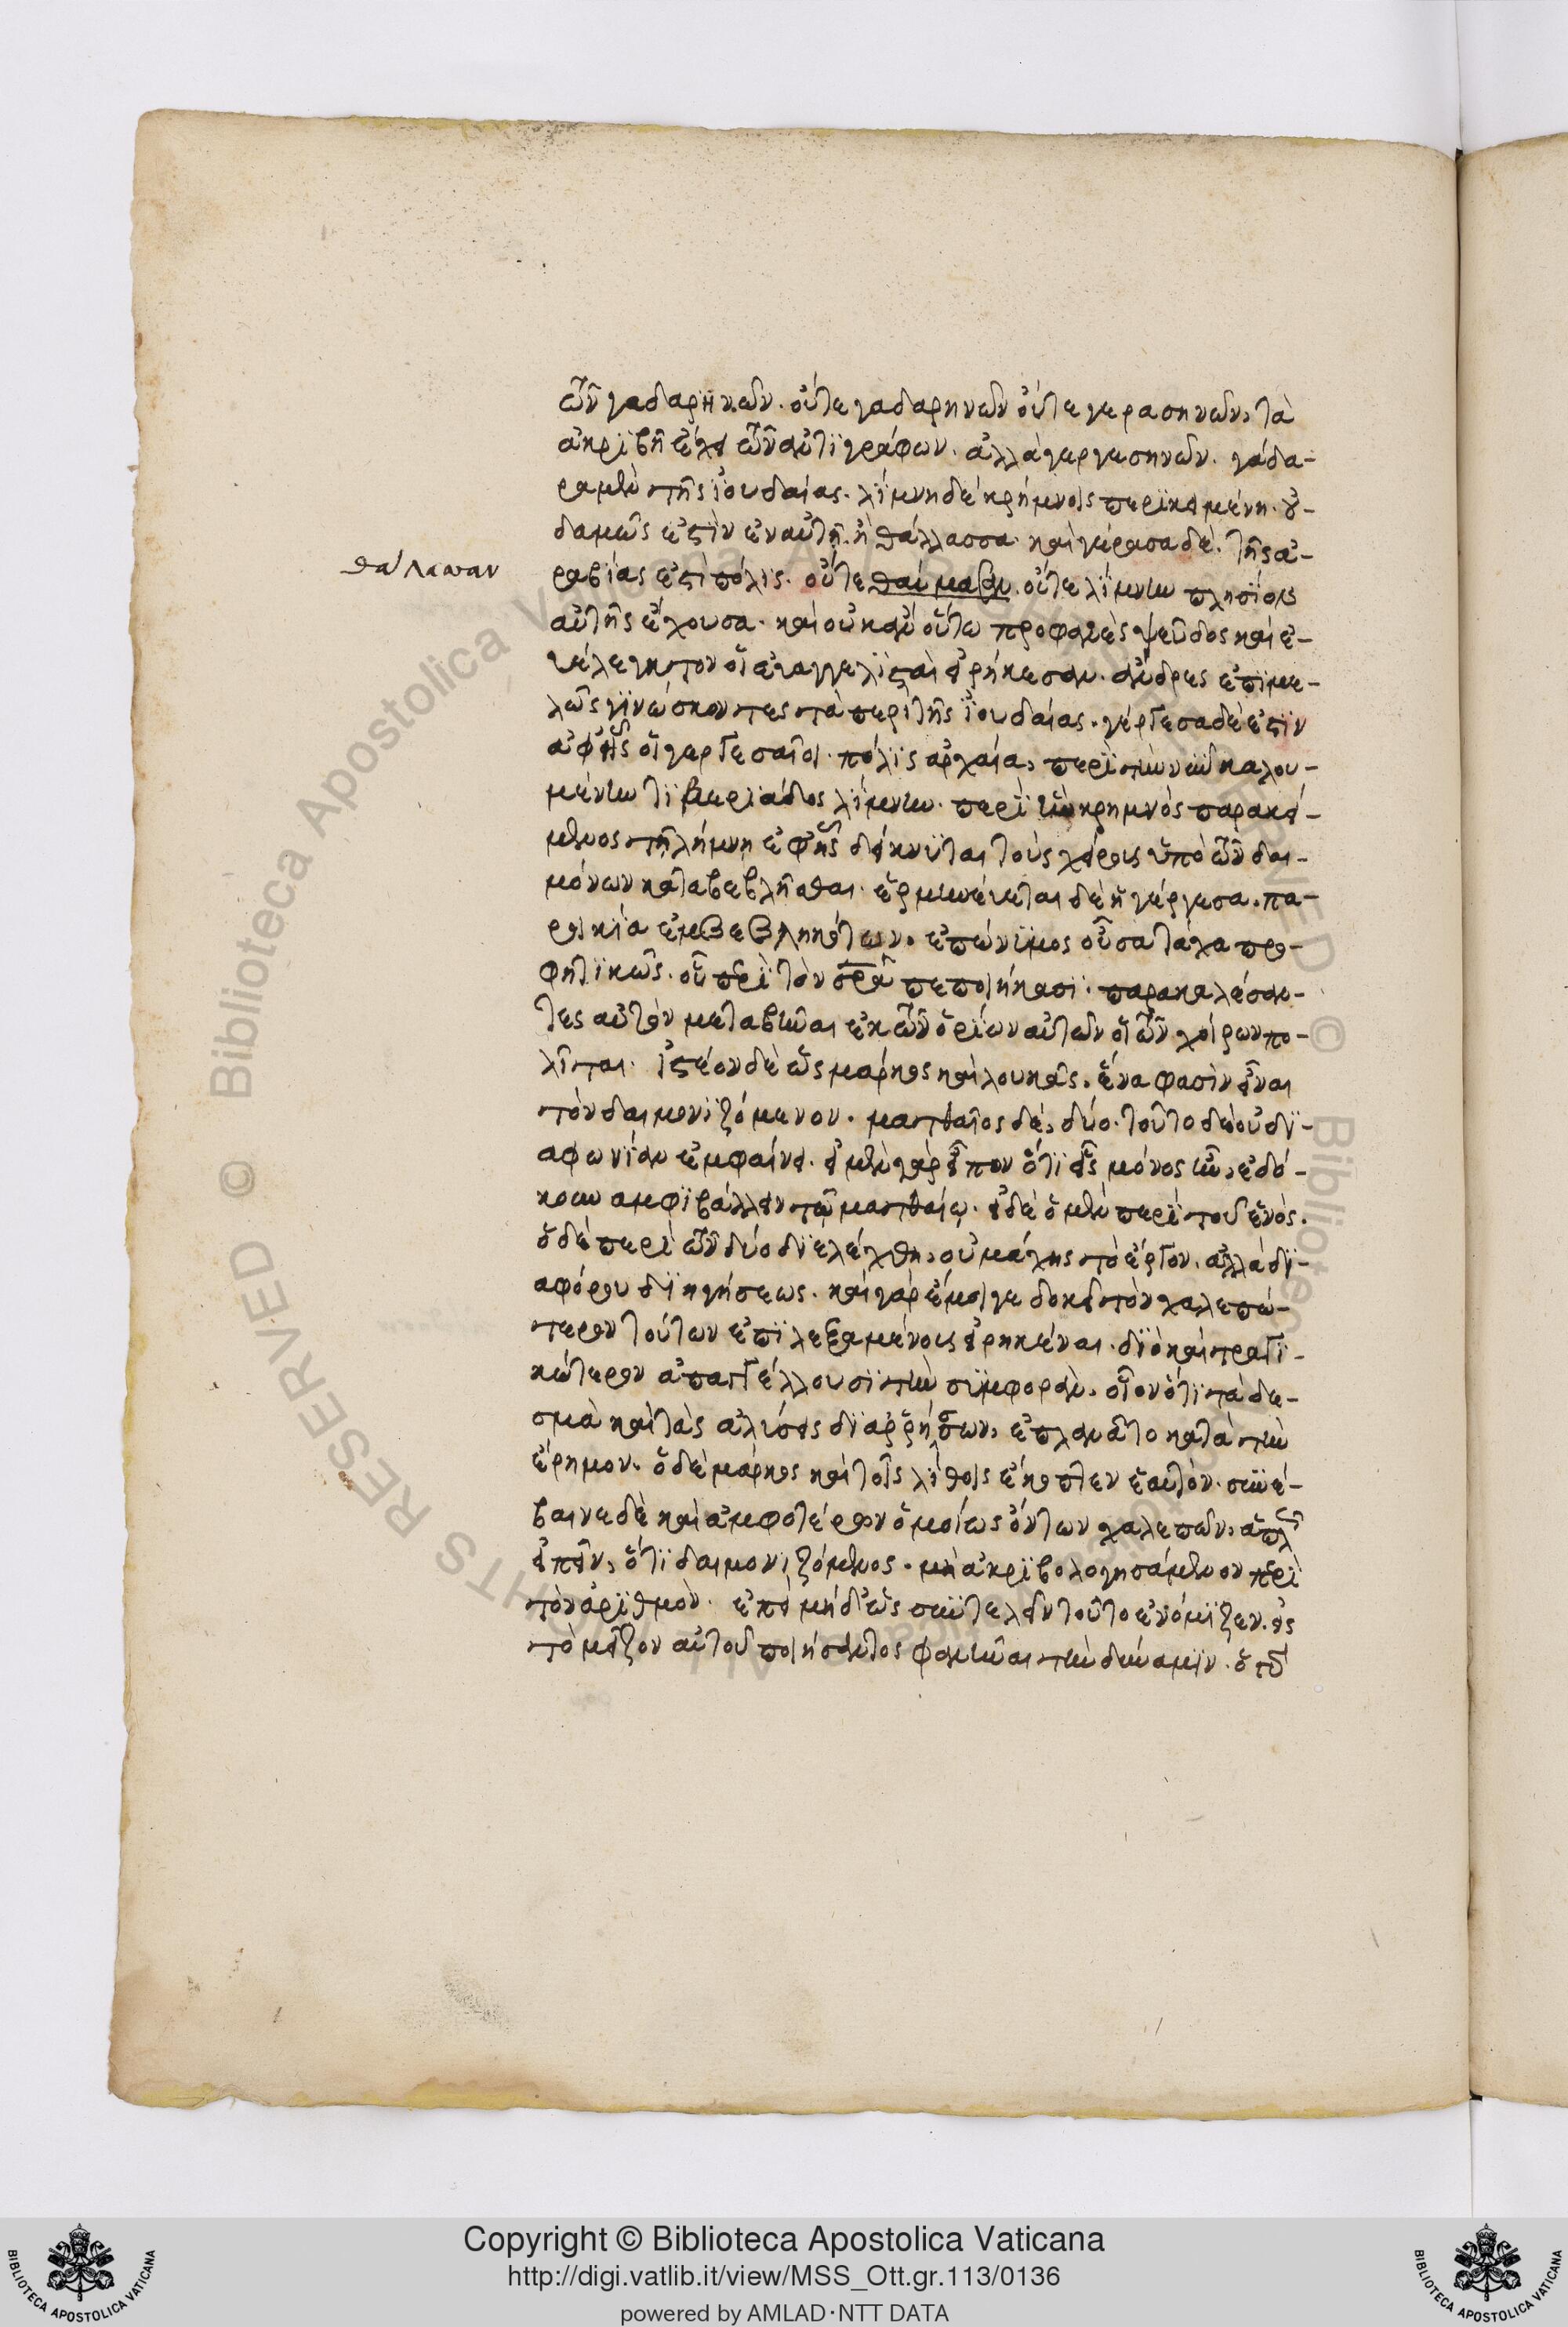 τῶν γαδαρηνῶν. οὔτε γαδαρηνῶν οὔτε γερασηνῶν, τὰ
ἀκριβῆ ἔχει τῶν ἀντιγράφων. ἀλλὰ γεργεσηνῶν. γάδα-
ρα μὲν τῆς ἰουδαίας. λίμνη δὲ κρήμνοις περικειμένη. οὐ-
δαμῶς ἐστὶν ἐν αὐτῆ. ἢ θάλλασσα. καὶ γέρασα δὲ. τῆς ἀ-
θάλασσαν
ραβίας ἐστὶ πόλις. οὔτε οὔτε λίμνην πλησίον
αὐτῆς ἔχουσα. καὶ οὐκ ἂν οὕτω προφανὲς ψεῦδος καὶ εὐ-
έλεγκτον οἱ εὐαγγελισταὶ εἰρήκεσαν. ἄνδρες ἐπιμε-
λῶς γινώσκοντες τὰ περὶ τῆς ἰουδαίας. γέργεσα δὲ ἐστὶν
ἀφ' ἧς οἱ γεργεσαῖοι. πόλις ἀρχαία, περὶ τὴν νῦν καλου-
μένην τιβεριάδος λίμνην. περὶ ἣν κρημνὸς παρακεί-
μενος τῆ λήμνη ἐφ' ἧς δείκνυται τοὺς χοίρους ὑπὸ τῶν δαι-
μόνων καταβεβλῆσθαι. ἑρμηνεύεται δὲ ἡ γέργεσα. πα-
ροικία ἐκβεβληκότων. ἐπώνυμος οὖσα τάχα προ-
φητικῶς. οὗ περὶ τὸν σρα πεποιήκασι. παρακαλέσαν-
τες αὐτὸν μεταβῆναι ἐκ τῶν ὁρίων αὐτῶν οἱ τῶν χοίρων πο-
λῖται. ἰστέον δὲ ὡς μάρκος καὶ λουκᾶς. ἕνα φασὶν εἶναι
τὸν δαιμονιζόμενον. ματθαῖος δὲ, δύο. τοῦτο δὲ οὐ δι-
αφωνίαν ἐμφαίνει. εἰ μὲν γὰρ εἶπον ὅτι εἷς μόνος ἦν, ἐδό-
κουν ἀμφιβάλλειν τῶ ματθαίω. εἰ δὲ ὁ μὲν περὶ τοῦ ἑνὸς.
ὁ δὲ περὶ τῶν δύο διελέχθη, οὐ μάχης τὸ ἔργον. ἀλλὰ δι-
αφόρου διηγήσεως. καὶ γὰρ ἔμοιγε δοκεῖ τὸν χαλεπώ-
τερον τούτων ἐπιλεξαμένους εἰρηκέναι. διὸ καὶ τραγι-
κώτερον ἀπαγγέλλουσι τὴν συμφορὰν. οἷον ὅτι τὰ δε-
σμὰ καὶ τὰς ἁλύσεις διαρρήσσων, ἐπλανᾶτο κατὰ τὴν
ἔρημον. ὁ δὲ μάρκος καὶ τοῖς λίθοις ἔκοπτεν ἑαυτὸν. συνέ-
βαινε δὲ καὶ ἀμφοτέρων ὁμοίως ὄντων χαλεπῶν, ἁπλ
εἰπεῖν, ὅτι δαιμονιζόμενος. μὴ ἀκριβολογησάμενον περὶ
τὸν ἀριθμὸν. ἐπεὶ μηδ' ὡς συντελεῖν τοῦτο ἐνόμιζεν. εἰς
τὸ μεῖζον αὐτοῦ ποιήσαντος φανῆναι τὴν δύναμιν. ὁ τοῦ
Copyright © Biblioteca Apostolica Vaticana
http://digi.vatlib.it/view/MSS_Ott.gr.113/0136
powered by AMLAD·NTT DATA